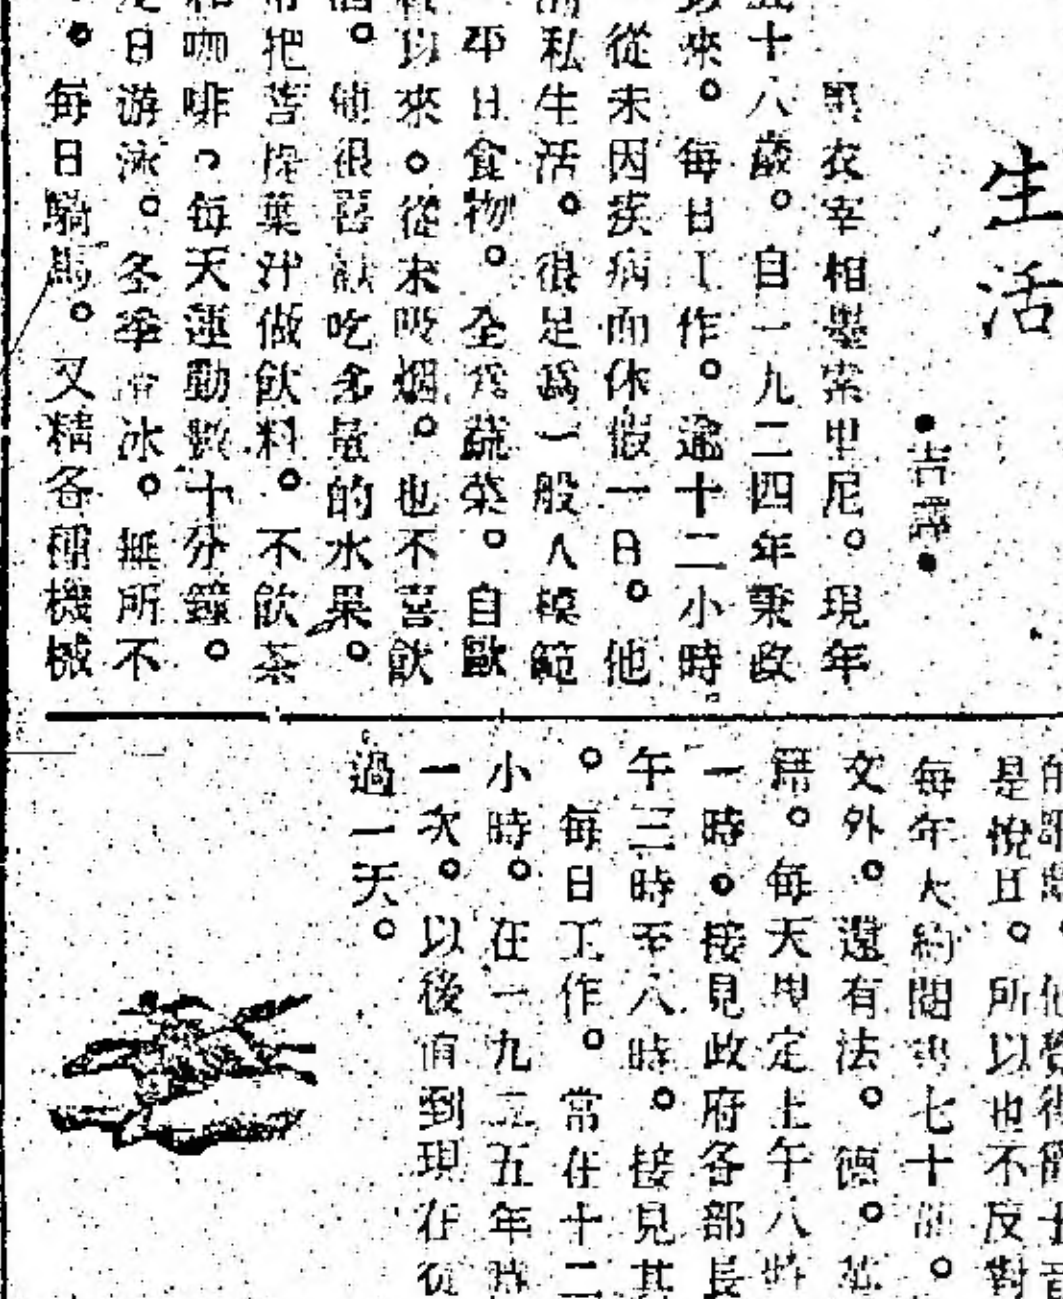 生活
•吉譯•
黑衣宰相墨索里尼。現年
五十八歲。自一九二四年秉政
以來。每日工作。逾十二小時
從未因疾病而休假一日。他
的私生活。很足爲一般人模範
平日食物。全爲蔬菜。自歐
以來。從未吸烟。也不喜飲
酒。他很喜歡吃多量的水果。
常把菩提葉汁做飲料。不飲茶
和咖啡。每天運動數十分鐘。
日游泳。冬季滑冰。無所不
。每日騎馬。又精各種機械
是悅耳。所以也不反對
每年大約閱書七十部。
文外。還有法。德。英
籍。每天規定上午八時
一時。接見政府各部長
午三時至八時。接見其
。每日工作。常在十二
小時。在一九三五年時
一次。以後直到現在從
過一天。